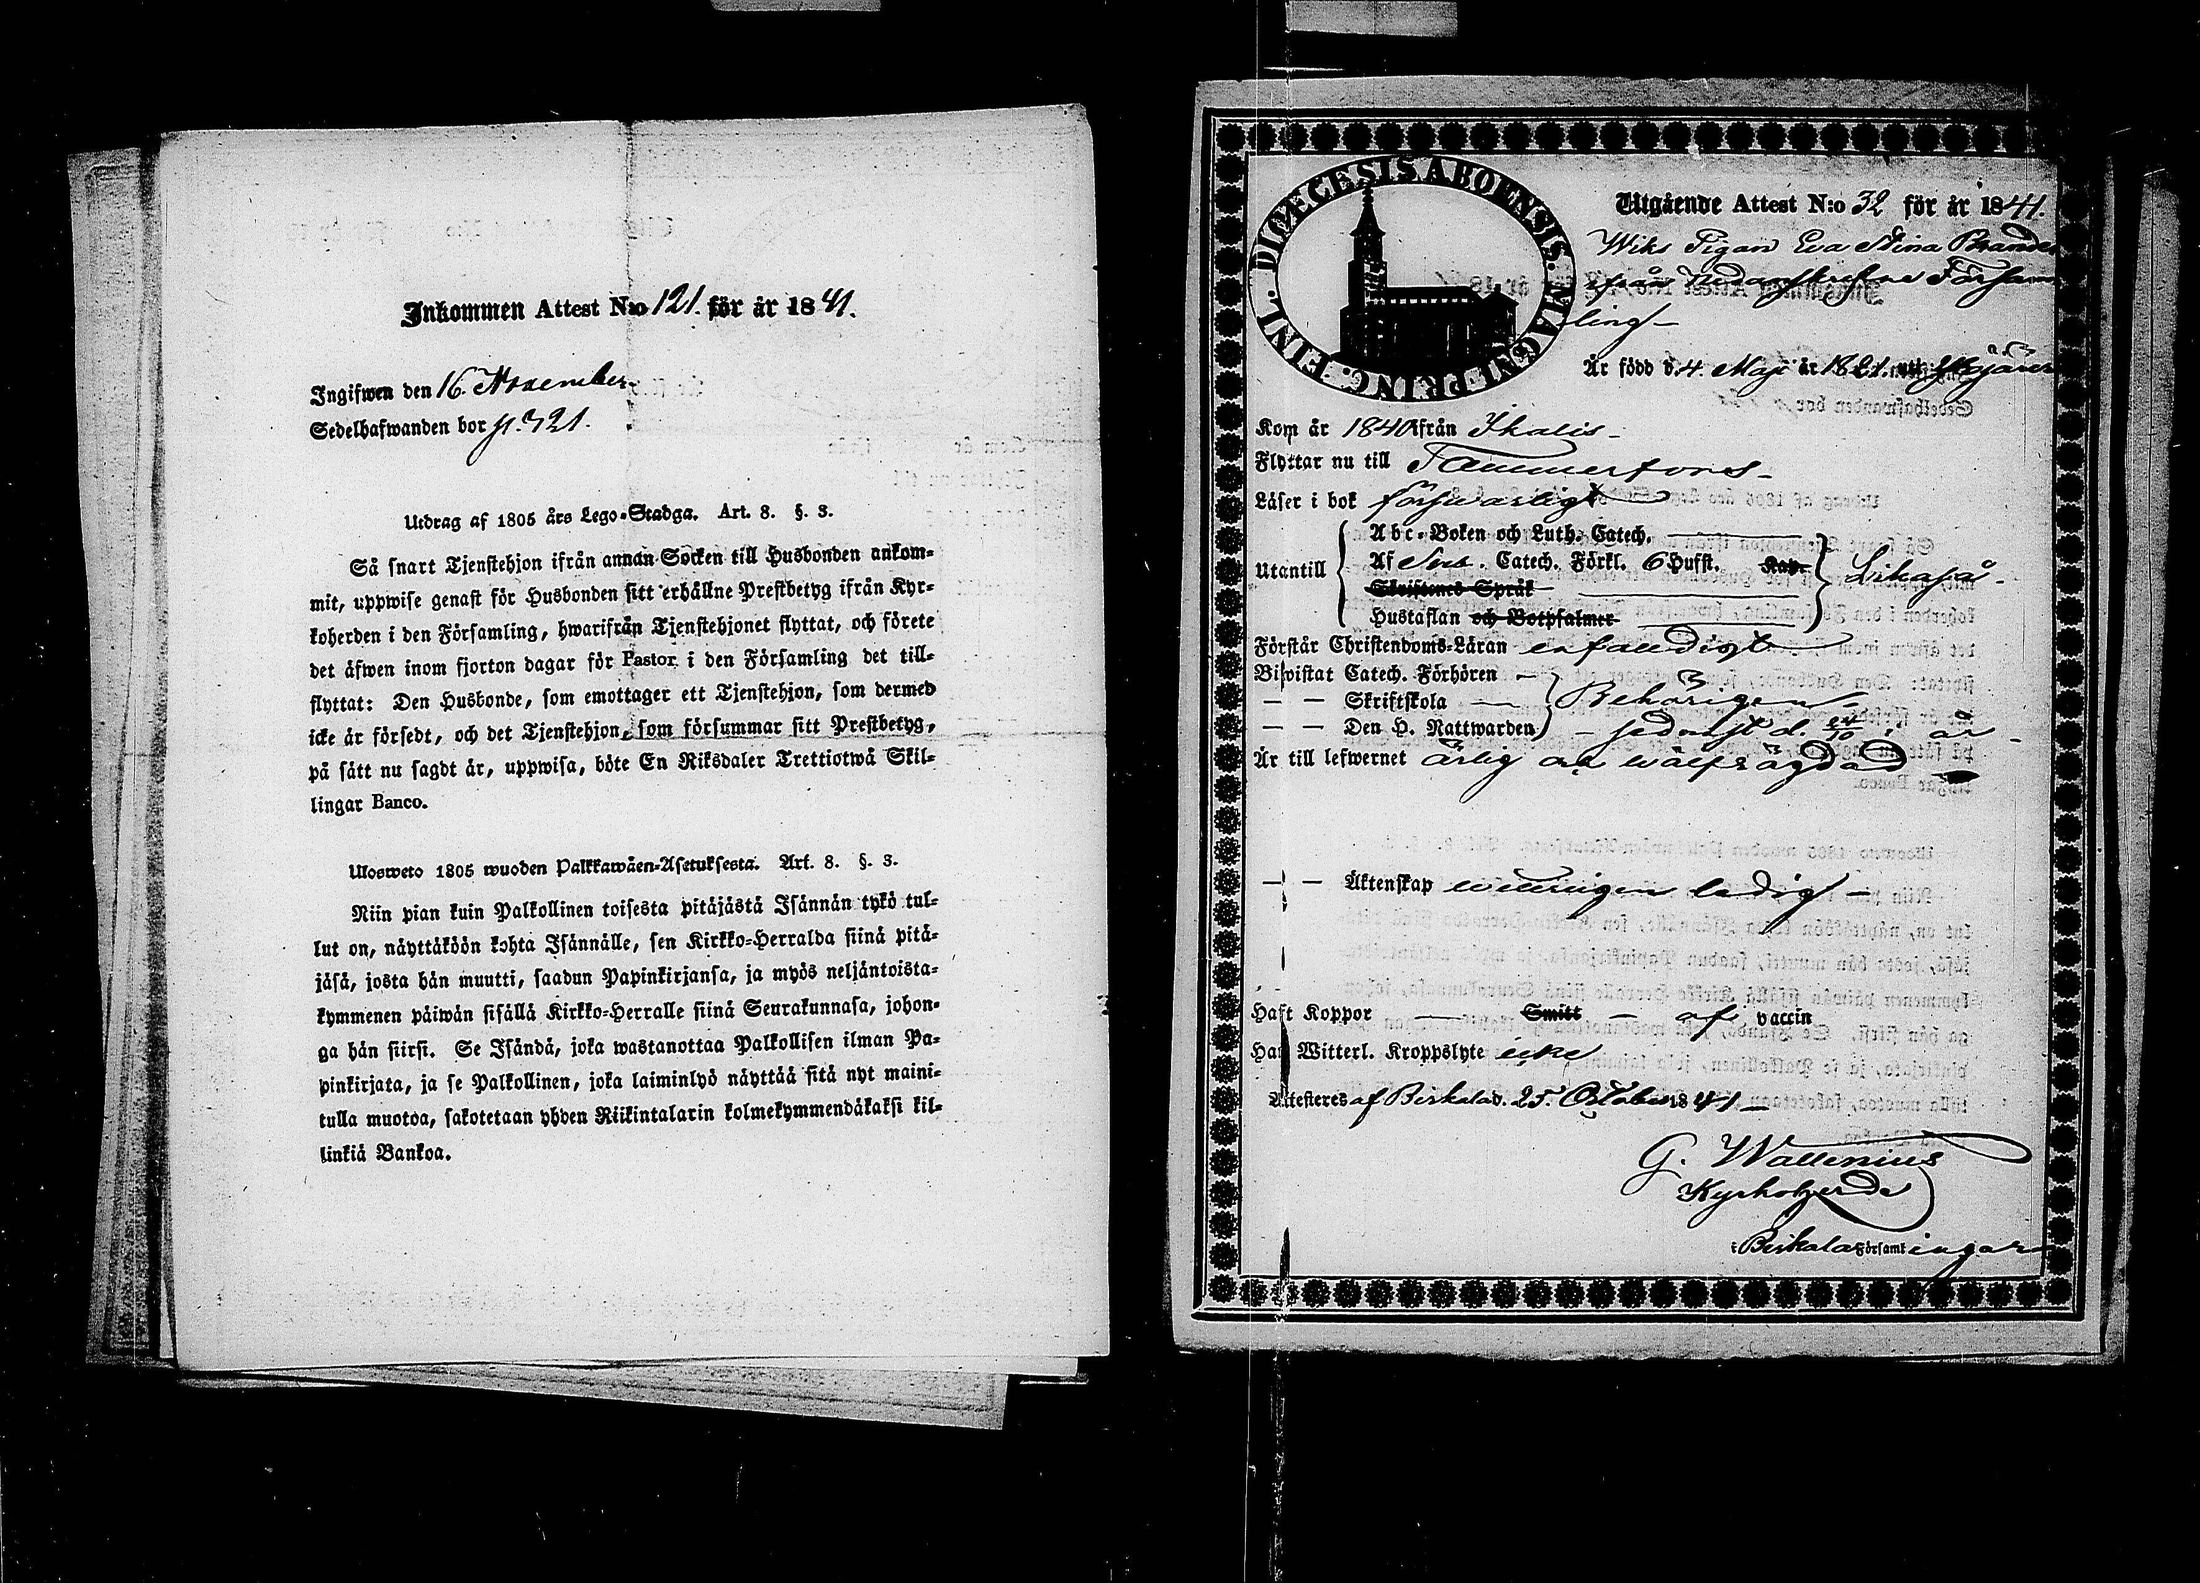 Inkommen Attest N:o 121. för år 1841.
Ingifwen den 16. November
Sedelhafwanden bor p. 321.
Utdrag af 1805 års Lego-Stadga. Art. 8. §. 3.
Så snart Tjenstehjon ifrån annan Socken till Husbonden ankom-
mit, uppwise genast för Husbonden sitt erhållne Prestbetyg ifrån Kyr-
koherden i den Församling, hwarifrån Tjenstehjonet flyttat, och förete
det äfwen inom fjorton dagar för Pastor i den Församling det till-
flyttat: Den Husbonde, som emottager ett Tjenstehjon, som dermed
icke är försedt, och det Tjenstehjon, som försummar sitt Prestbetyg,
på sätt nu sagdt är, uppwisa, böte En Riksdaler Trettiotwå Skil-
lingar Banco.
Ulosweto 1805 wuoden Palkkawäen-Asetuksesta. Art. 8. §. 3.
Niin pian kuin Palkollinen toisesta pitäjästä Isännän tykö tul-
lut on, näyttäköön kohta Isännälle, sen Kirkko-Herralda siinä pitä-
jäsä, josta hän muutti, saadun Papinkirjansa, ja myös neljäntoista-
kymmenen päiwän sisällä Kirkko-Herralle siinä Seurakunnasa, johon-
ga hän siirsi. Se Isändä, joka wastanottaa Palkollisen ilman Pa-
pinkirjata, ja se Palkollinen, joka laiminlyö näyttää sitä nyt maini-
tulla muotoa, sakotetaan yhden Riikintalarin kolmekymmendäkaksi kil-
linkiä Bankoa.
DIŒCESIS ABOENSIS. MAGNI PRINC. FINL.
Utgående Attest N:o 32 för år 1841.
Wiks Pigan Eva Stina
ifrån Nedanskrefne Försam
ling
Är född d. 4. Maji år 1821.
Kom år 1840 ifrån Ikalis
Flyttar nu till Tammerfors
Läser i bok försvarligt
Abc-Boken och Luth. Catech.
Utantill Af Sveb. Catech. Förkl. 6 Hufst. Kap. Likaså
Skriftenes Språk
Hustaflan och Botpsalmer
Förstår Christendoms-Läran enfaldigt
Biwistat Catech. Förhören
— — Skriftskola — Behörigen
— — Den H. Nattwarden sednast d. i år
Är till lefwernet ärlig och wälfrägdad
— — Äktenskap weterligen ledig
Haft Koppor — Smitt — af vaccin
Har Witterl. Kroppslyte icke
Attesteres af Birkala d. 25. October 1841
G. Wallenius
Kyrkoherde
i Birkala Församlingar